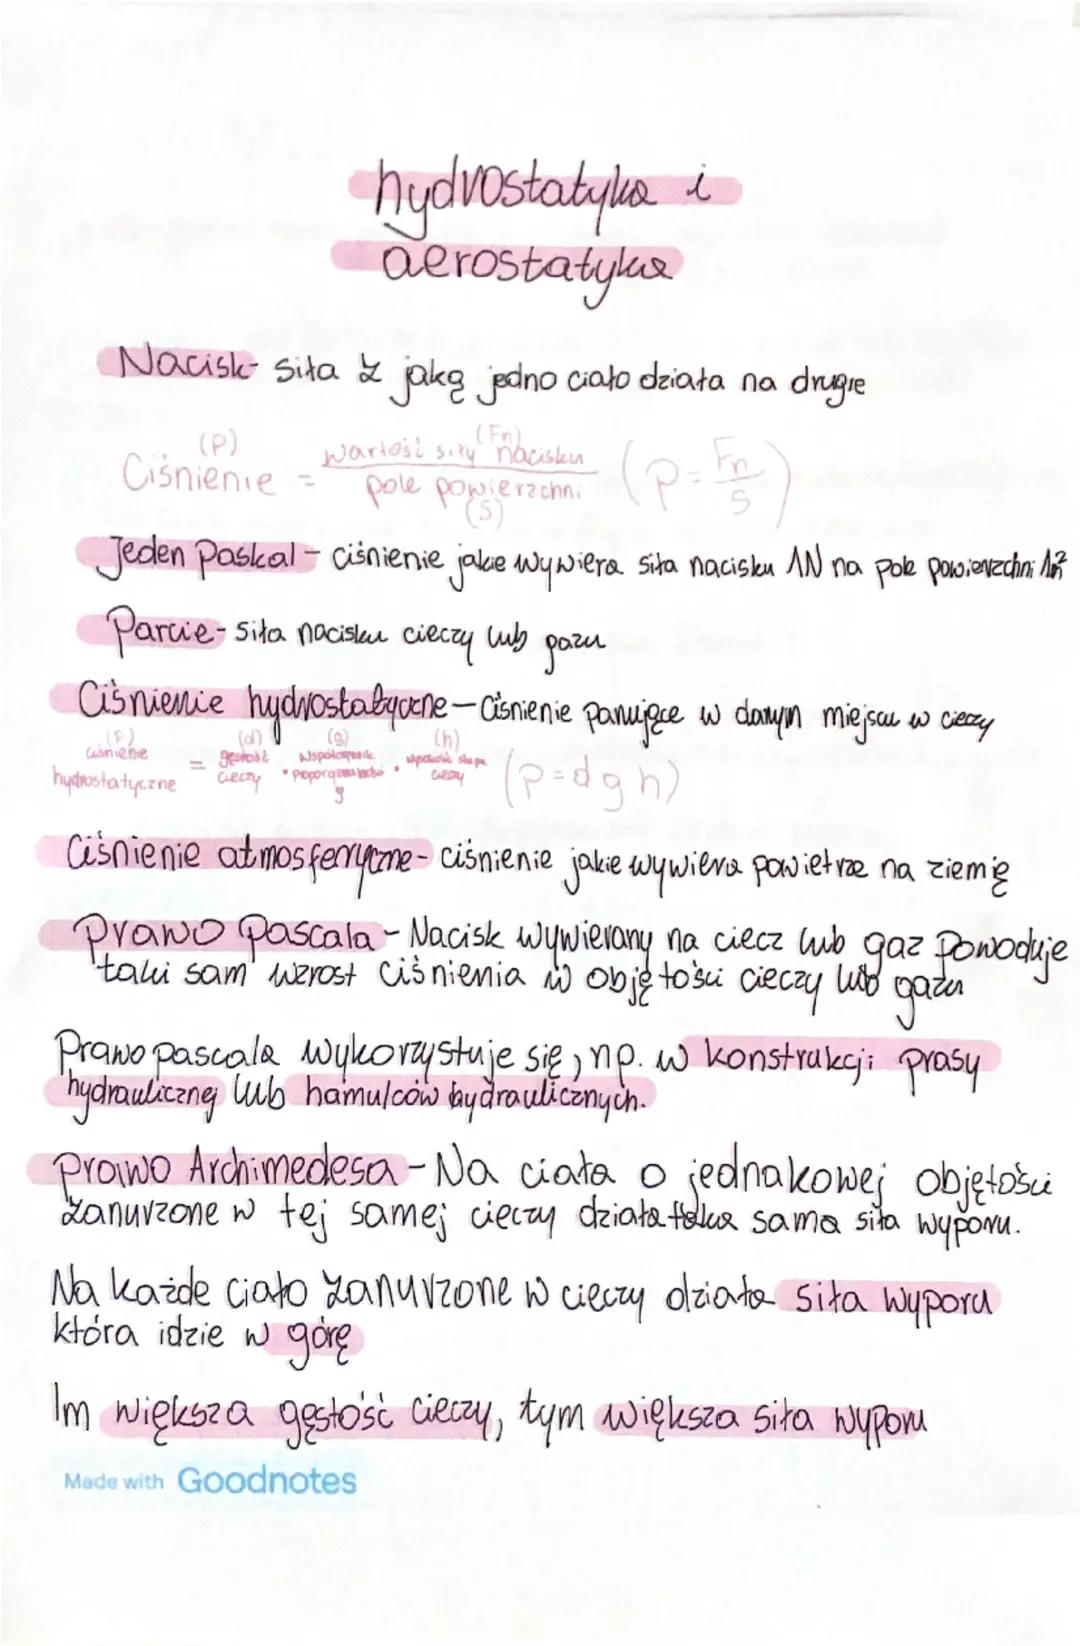 hydrostatyka i
aerostatyka
Nacisk- siła z jaką jedno ciało działa na drugie
(P) Ciśnienie = wartość siły (Fn) nacisku / pole powierzchni (S) (p = Fn / S)
Jeden Paskal - ciśnienie jakie wywiera siła nacisku 1N na pole powierzchni 1m²
Parcie- siła nacisku cieczy lub gazu
Ciśnienie hydrostatyczne - Ciśnienie panujące w danym miejscu w cieczy
(P) (d) (g) (h)
ciśnienie gęstość współczynnik wysokość słupa
hydrostatyczne = cieczy • proporcjonalności • cieczy (p = d g h)
g
Ciśnienie atmosferyczne- ciśnienie jakie wywiera powietrze na ziemię
Prawo Pascala - Nacisk wywierany na ciecz lub gaz Powoduje
taki sam wzrost ciśnienia w objętości cieczy lub gazu
Prawo pascala wykorzystuje się, np. w konstrukcji prasy
hydraulicznej lub hamulców hydraulicznych.
Prawo Archimedesa - Na ciała o jednakowej objętości
zanurzone w tej samej cieczy działa taka sama siła wyporu.
Na każde ciało zanurzone w cieczy działa siła wyporu
która idzie w górę
Im większa gęstość cieczy, tym większa siła wyporu
Made with Goodnotes